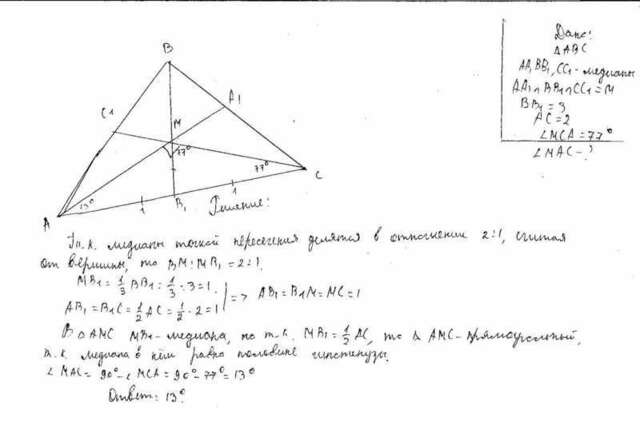 Дано:
△ABC
AA₁ BB₁, CC₁ - медианы
AA₁ ∩ BB₁ ∩ CC₁ = M
BB₁ = 3
AC = 2
∠MCA = 77°
∠MAC - ?
B
C1
A1
M
77°
77°
C
A
13°
1
B₁
1
Решение:
Т.к. медианы точкой пересечения делятся в отношении 2:1, считая
от вершины, то BM:MB₁ = 2:1.
MB₁ = 1/3 BB₁ = 1/3 · 3 = 1.
AB₁ = B₁C = 1/2 AC = 1/2 · 2 = 1
=> AB₁ = B₁M = MC = 1
В △AMC MB₁ - медиана, но т.к. MB₁ = 1/2 AC, то △ AMC - прямоугольный,
т.к. медиана в нём равна половине гипотенузы.
∠MAC = 90° - ∠MCA = 90° - 77° = 13°
Ответ: 13°